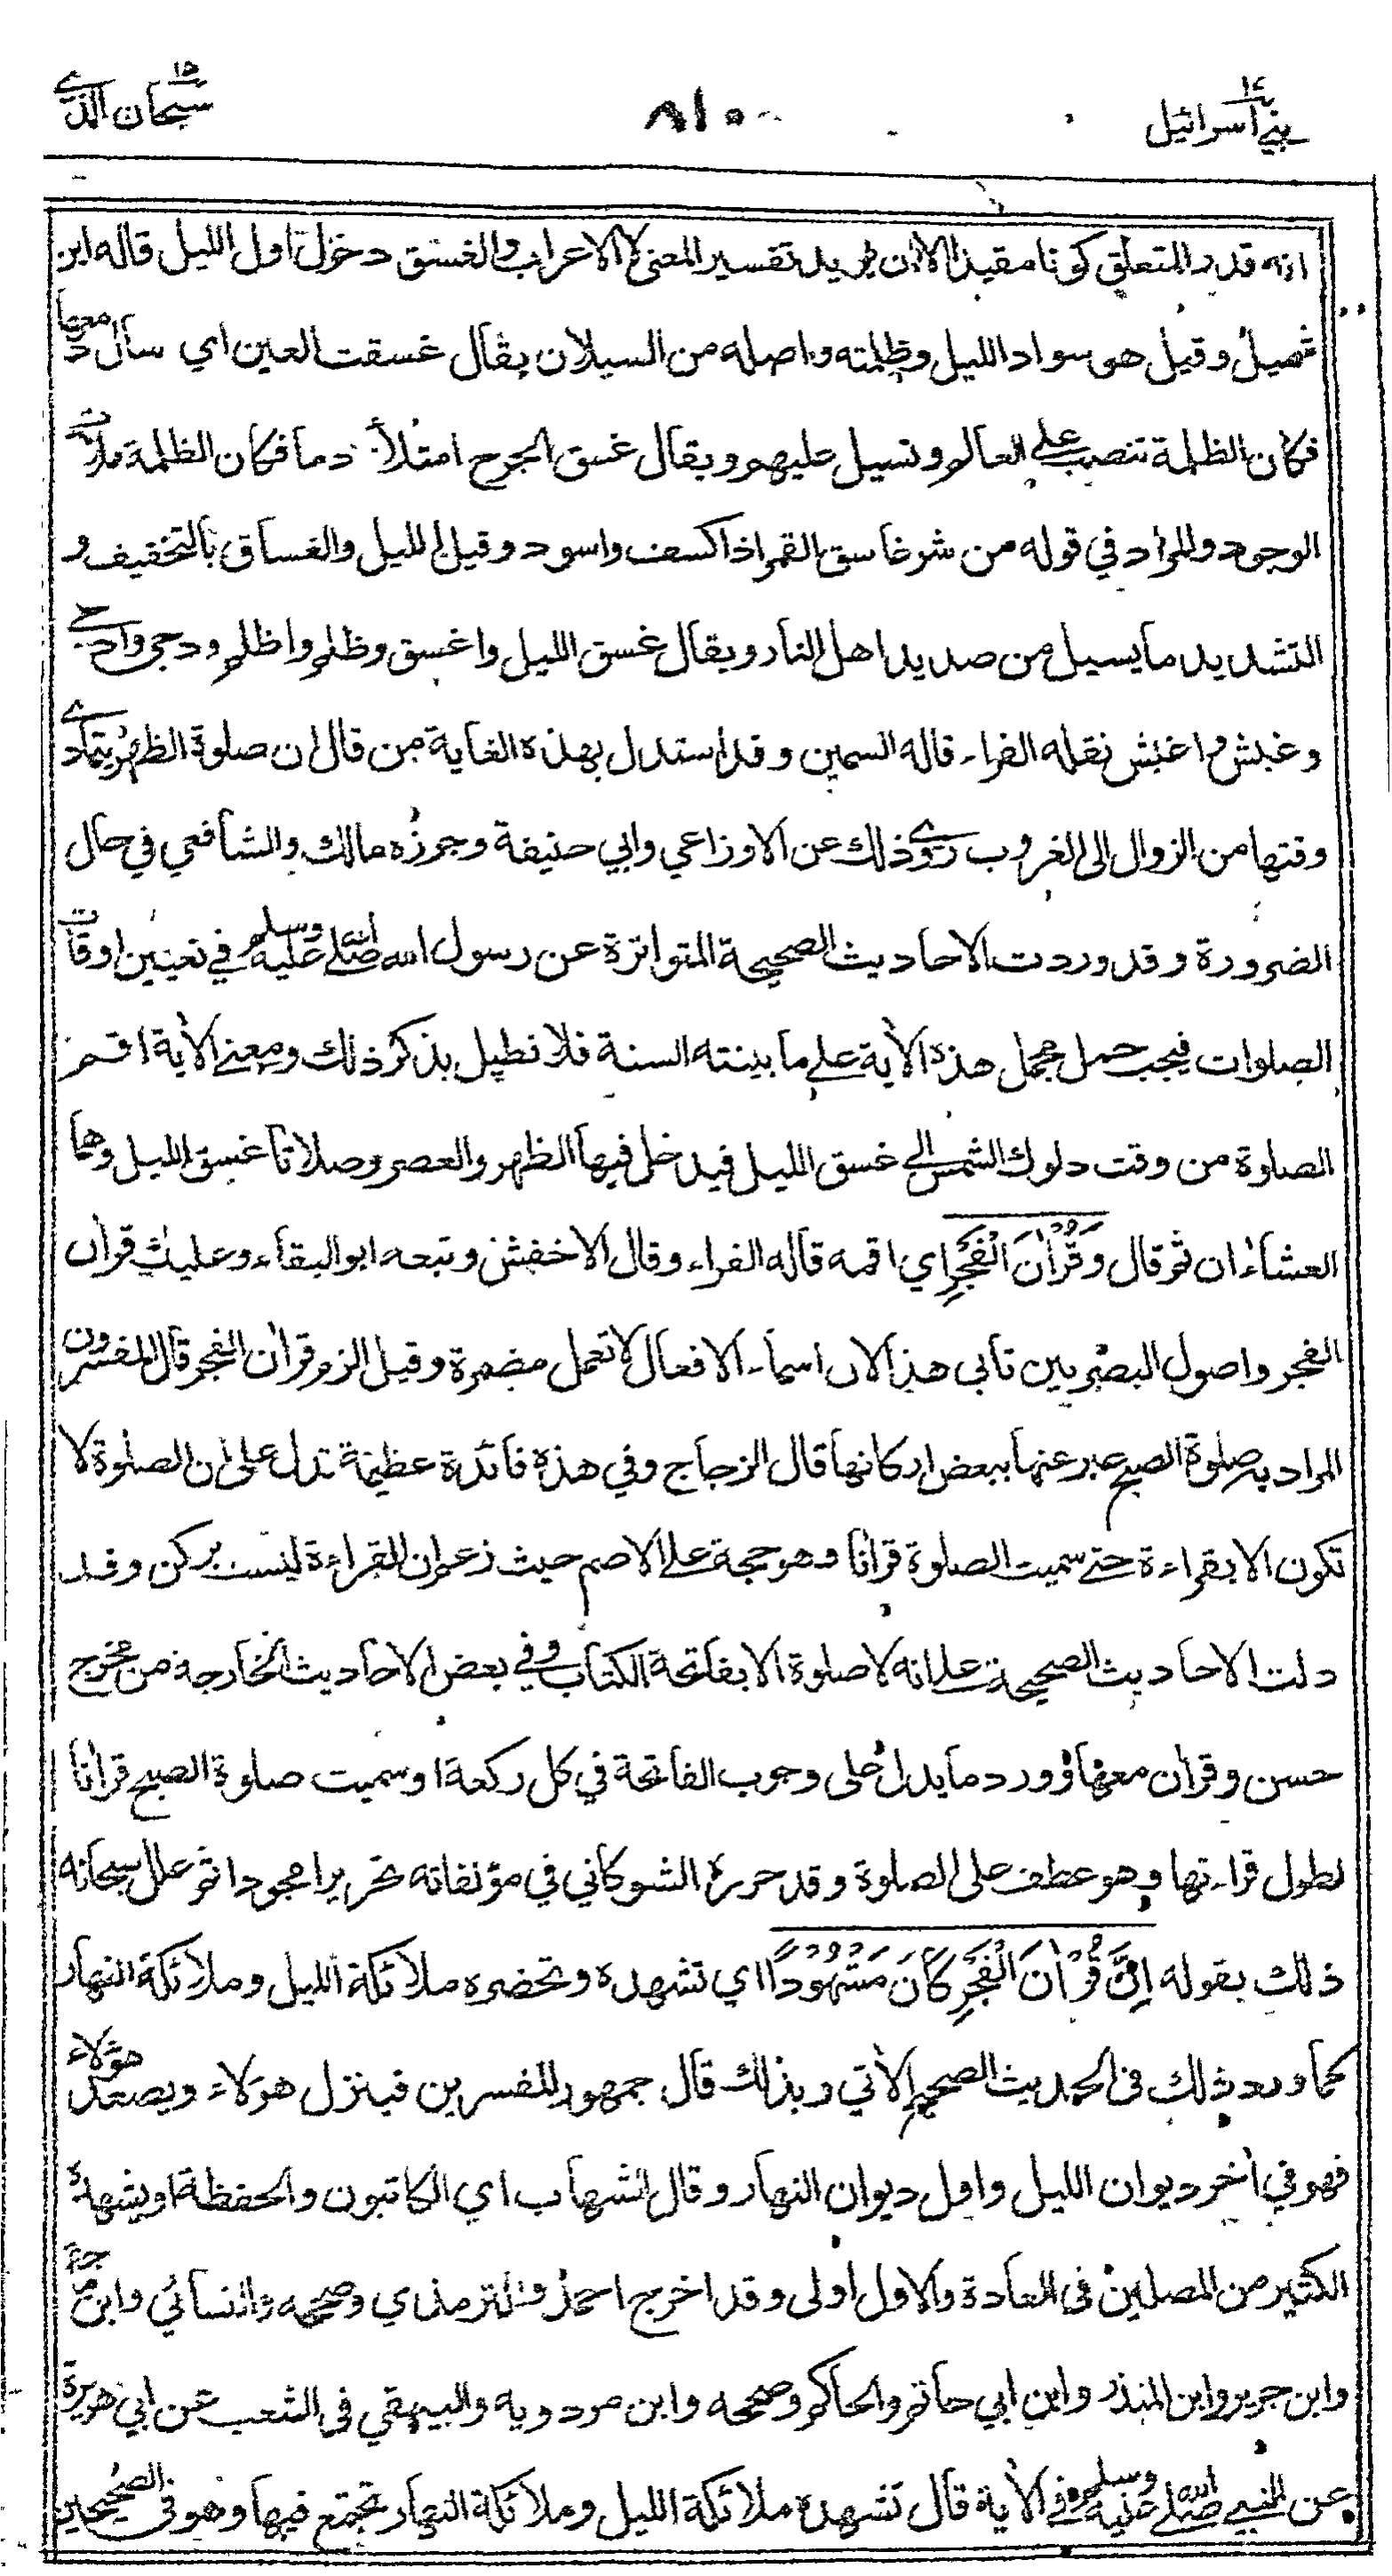 بني اسرائيل ١٧
٨١٠
سبحان الذي ١٥
انه قدر المتعلق كونا مقيدا الا ان يريد تفسير المعنى لا الاعراب والغسق دخول اول الليل قاله ابن
شميل وقيل هو سواد الليل وظلمته واصله من السيلان يقال غسقت العين اي سال دمعها
فكان الظلمة تنصب على العالم وتسيل عليهم ويقال غسق الجرح امتلأ دما فكان الظلمة ملأت
الوجود والمراد في قوله من شر غاسق القمر اذا كسف واسود وقيل الليل والغساق بالتخفيف و
التشديد ما يسيل من صديد اهل النار ويقال غسق الليل واغسق وظلم واظلم ودجى وادجى
وغبش واغبش نقله الفراء قاله السمين وقد استدل بهذه الغاية من قال ان صلوة الظهر يتمادى
وقتها من الزوال الى الغروب روي ذلك عن الاوزاعي وابي حنيفة وجوزه مالك والشافعي في حال
الضرورة وقد وردت الاحاديث الصحيحة المتواترة عن رسول الله صلى الله عليه وسلم في تعيين اوقات
الصلوات فيجب حمل مجمل هذه الأية على ما بينته السنة فلا نطيل بذكر ذلك ومعنى الأية اقم
الصلوة من وقت دلوك الشمس الى غسق الليل فيدخل فيها الظهر والعصر وصلاتا غسق الليل وهما
العشاءان ثم قال وَقُرْاٰنَ الْفَجْرِ اي اقمه قاله الفراء وقال الاخفش وتبعه ابو البقاء وعليك قرأن
الفجر واصول البصريين تأبى هذا لان اسماء الافعال لا تعمل مضمرة وقيل الزم قرأن الفجر قال المفسرون
المراد به صلوة الصبح عبر عنها ببعض اركانها قال الزجاج وفي هذه فائدة عظيمة تدل على ان الصلوة لا
تكون الا بقراءة حتى سميت الصلوة قرأنا وهو حجة على الاصم حيث زعم ان القراءة ليست بركن وقد
دلت الاحاديث الصحيحة على انه لا صلوة الا بفاتحة الكتاب وفي بعض الاحاديث الخارجة من مخرج
حسن وقرأن معها وورد ما يدل على وجوب الفاتحة في كل ركعة او سميت صلوة الصبح قرأنا
لطول قراءتها وهو عطف على الصلوة وقد حرره الشوكاني في مؤلفاته تحريرا مجودا ثم علل سبحانه
ذلك بقوله اِنَّ قُرْاٰنَ الْفَجْرِ كَانَ مَشْهُوْدًا اي تشهده وتحضره ملائكة الليل وملائكة النهار
كما ورد ذلك في الحديث الصحيح الأتي وبذلك قال جمهور المفسرين فينزل هؤلاء ويصعد هؤلاء
فهو في أخر ديوان الليل واول ديوان النهار وقال الشهاب اي الكاتبون والحفظة او يشهده
الكثير من المصلين في العادة والاول اولى وقد اخرج احمد والترمذي وصححه والنسائي وابن ماجة
وابن جرير وابن المنذر وابن ابي حاتم والحاكم وصححه وابن مردويه والبيهقي في الشعب عن ابي هريرة
عن النبي صلى الله عليه وسلم في الأية قال تشهده ملائكة الليل وملائكة النهار تجتمع فيها وهو في الصحيحين